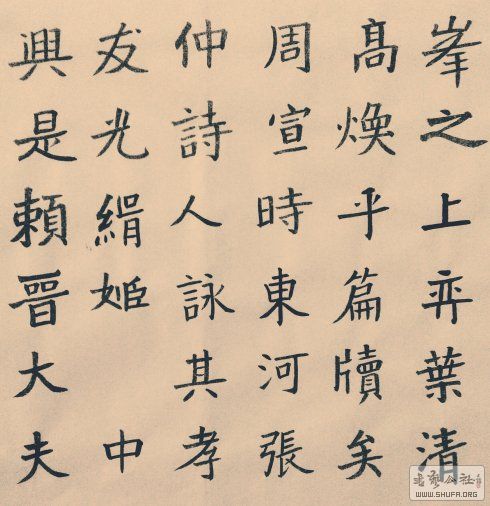 峯之上弈葉清
髙煥乎篇牘矣
周宣時東河張
仲詩人詠其孝
友光緝姬 中
興是賴晉大夫
WWW.SHUFA.ORG